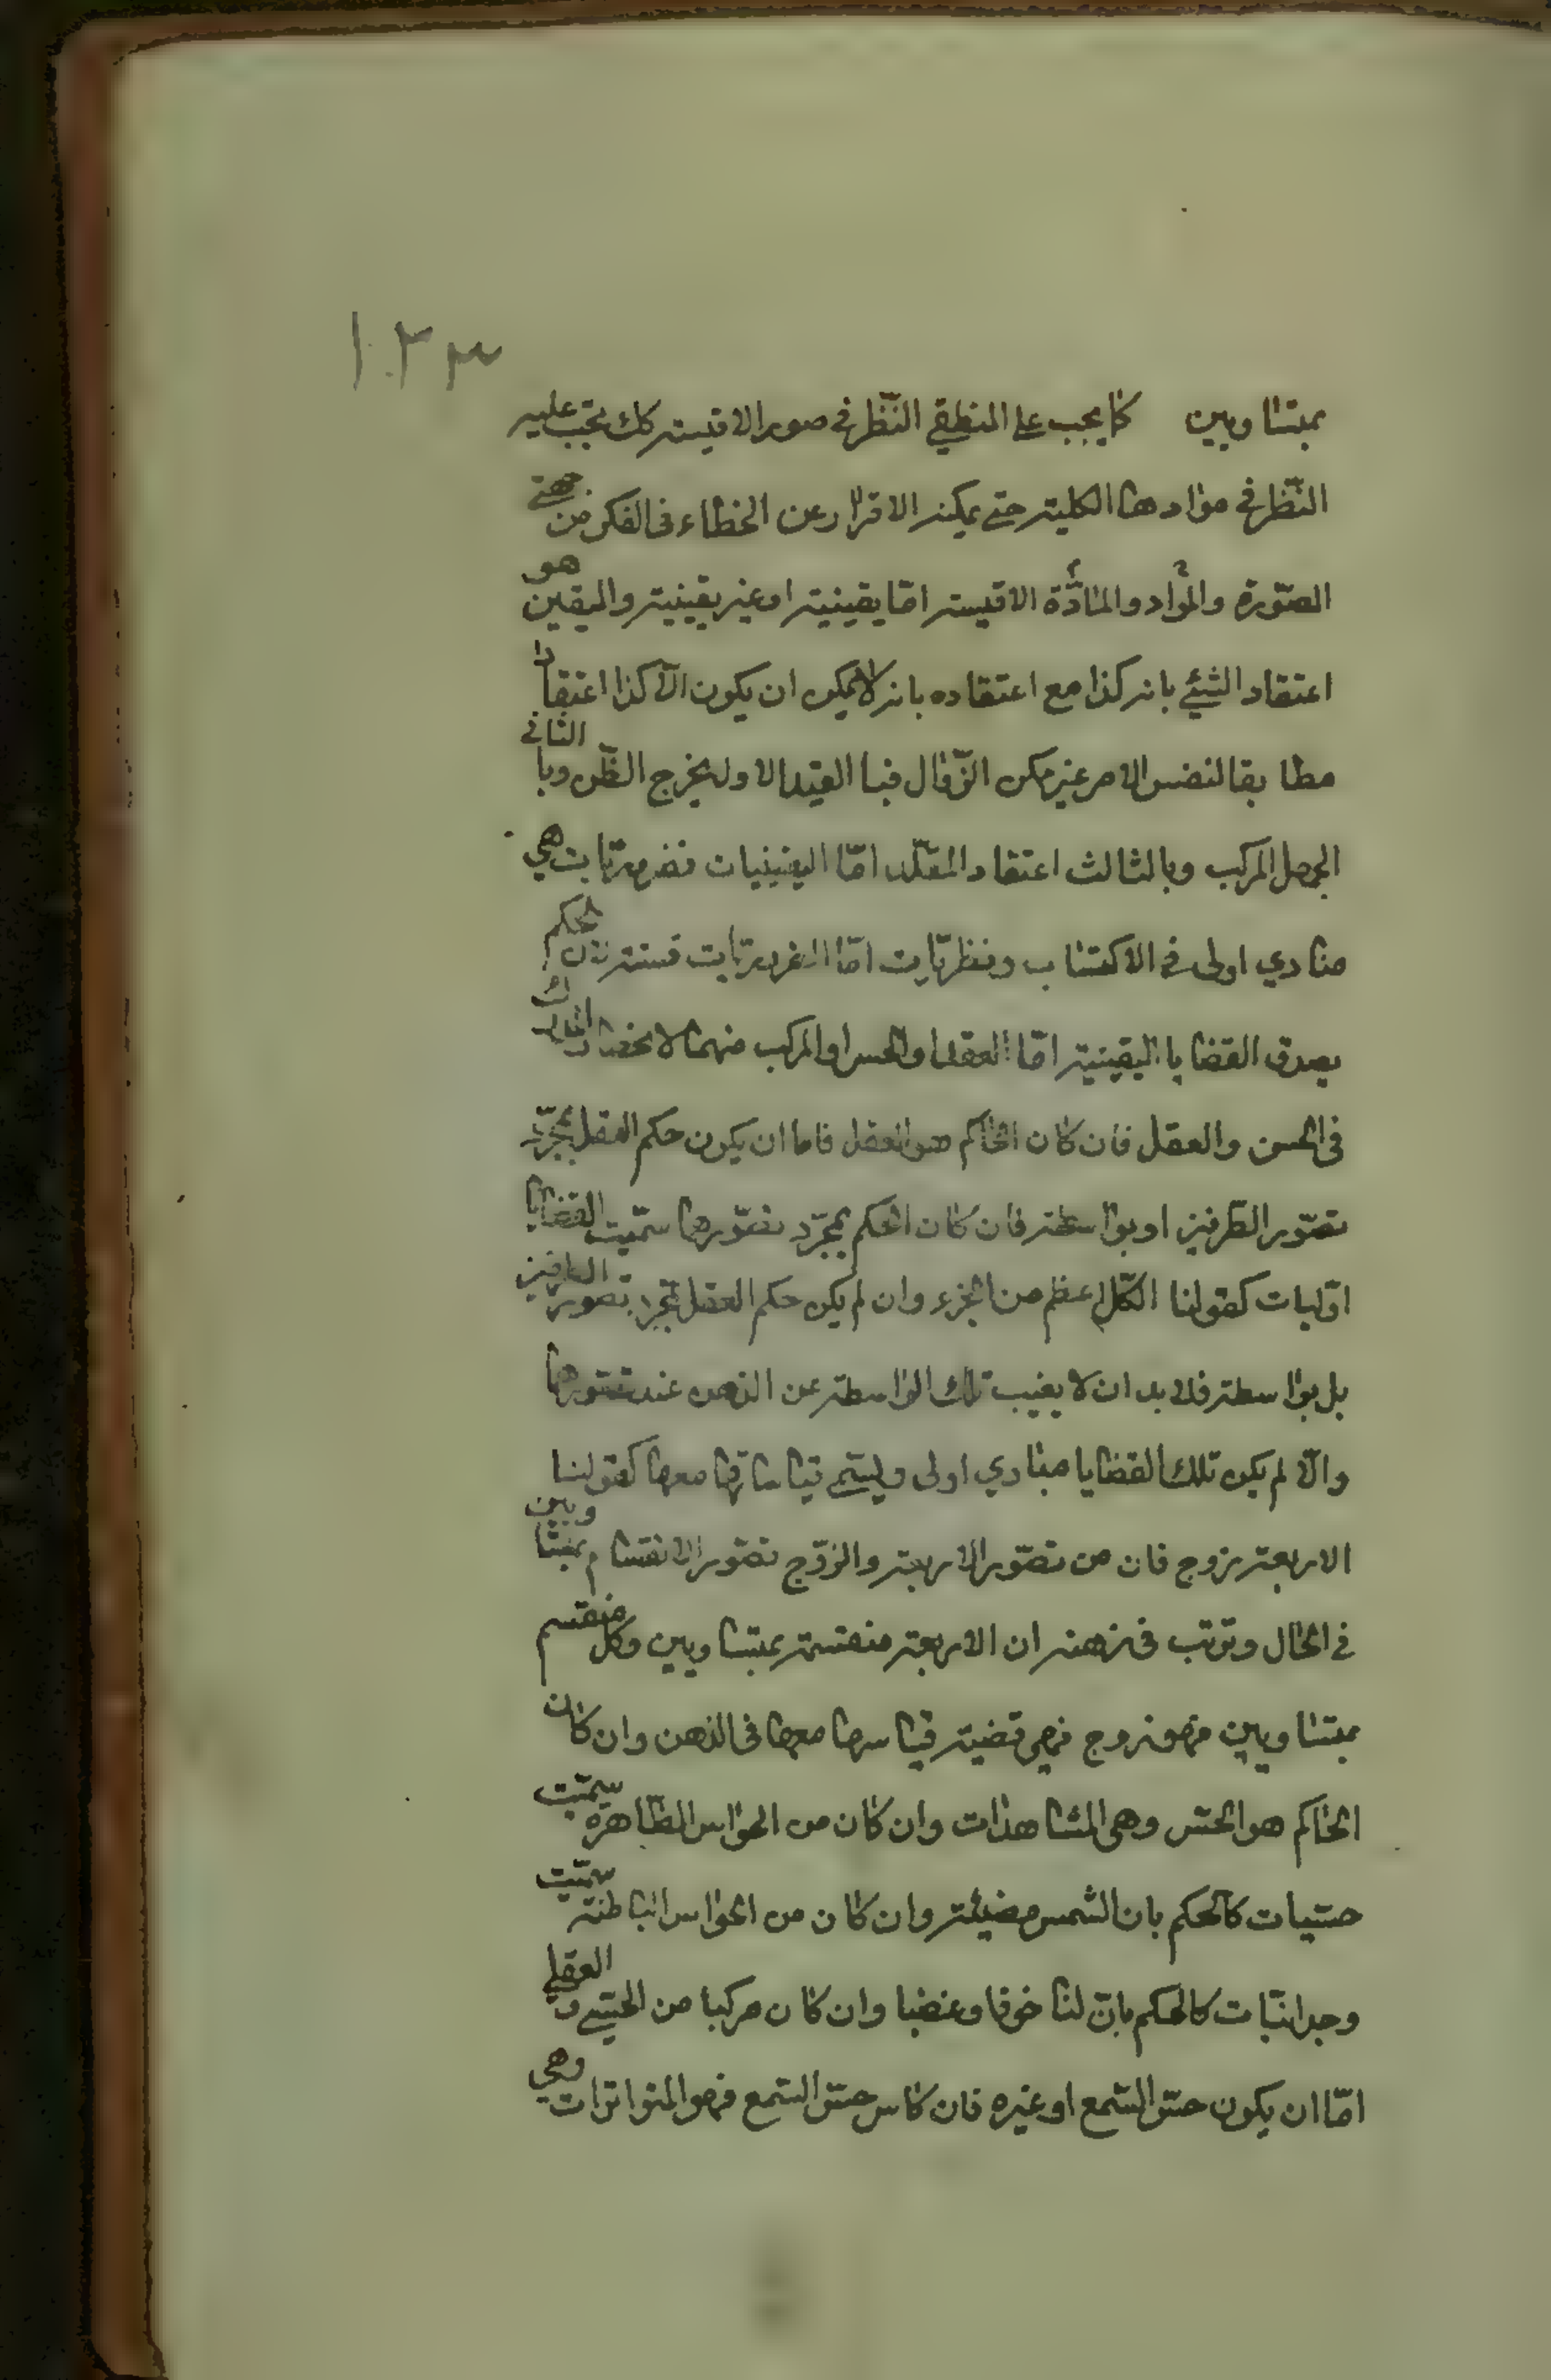 ١٠٢٣
بمتساويين كما يجب على المنطقي النّظر في صور الاقيسة كك يجب عليه
النّظر في موادها الكلية حتى يمكنه الاقرار عن الخطاء في الفكر من جهتي
الصّورة والموادّ والمادّة الاقيسة امّا يقينية او غير يقينية واليقين هو
اعتقاد الشيئ بانه كذا مع اعتقاده بانه لا يمكن ان يكون الّا كذا اعتقادا
مطابقا لنفس الامر غير ممكن الزّوال فبا القيد الاول يخرج الظّن وبا الثاني
الجهل المركب وبالثالث اعتقاد المقلّد امّا اليقينيات فضروريّات هي
مبادي اولى في الاكتساب ونظريّات امّا الضروريّات فستة لان الحكم
بصدق القضايا اليقينية امّا العقل او الحس او المركب منهما لانحصار المدرك
في الحس والعقل فان كان الحاكم هو العقل فاما ان يكون حكم العقل بمجرّد
تصّور الطّرفين او بواسطة فان كان الحكم بمجرّد تصّورها سمّيت القضايا
اوّليات كقولنا الكّل اعظم من الجزء وان لم يكن حكم العقل بمجرد تصور الطرفين
بل بواسطة فلا بد ان لا يغيب تلك الواسطة عن الذهن عند تصّورها
والّا لم يكن تلك القضايا مبادي اولى ويسمّى قياساتها معها كقولنا
الاربعة زوج فان من تصّور الاربعة والزّوج تصّور الانقسام بمتساويين
في الحال وترتب في ذهنه ان الاربعة منقسمة بمتساويين وكل منقسم
بمتساويين فهو زوج فهي قضية قياسها معها في الذهن وان كان
الحاكم هو الحسّ وهي المشاهدات وان كان من الحواس الظّاهرة سمّيت
حسّيات كالحكم بان الشمس مضيئة وان كان من الحواس الباطنة سمّيت
وجدانيّات كالحكم بانّ لنا خوفا وغضبا وان كان مركبا من الحسّي والعقلي
امّا ان يكون حسّ السّمع او غيره فان كان حسّ السّمع فهو المتواترات وهي